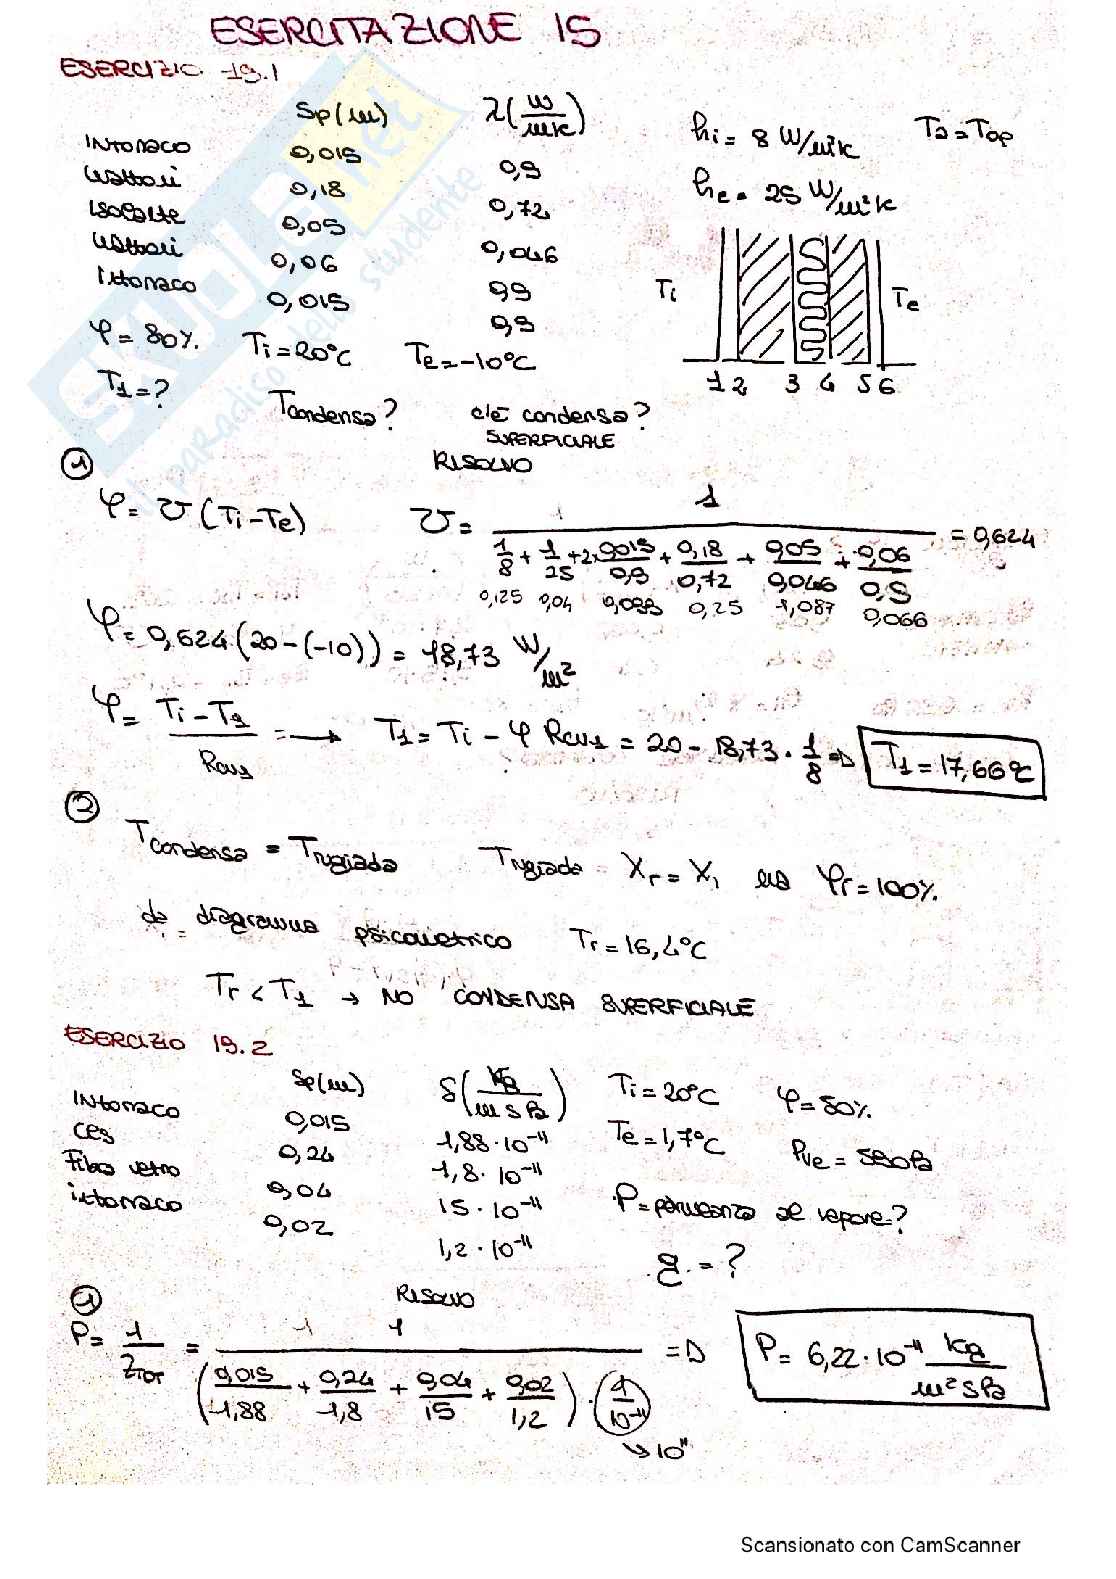 ESERCITAZIONE 15
ESERCIZIO 19.1
Sp(m) λ(W/mK)
INTONACO 0,015 0,9
Mattoni 0,18 0,72
Isolante 0,05 0,046
Mattoni 0,06 0,9
Intonaco 0,015 0,9
hi = 8 W/m²K Ta = Top
he = 25 W/m²K
Ti Te
1 2 3 4 5 6
φ = 80% Ti = 20°C Te = -10°C
T1 = ? Tcondensa? c'è condensa?
SUPERFICIALE
① RISOLVO
φ = U (Ti - Te) U = 1 / (1/8 + 1/25 + 2·0,015/0,9 + 0,18/0,72 + 0,05/0,046 + 0,06/0,9) = 0,624
0,125 0,04 0,033 0,25 1,087 0,066
φ = 0,624 (20 - (-10)) = 18,73 W/m²
φ = (Ti - T1) / Rcv1 → T1 = Ti - φ Rcv1 = 20 - 18,73 · 1/8 => T1 = 17,66°C
②
Tcondensa = Trugiada Trugiada Xr = X1 ma φr = 100%.
da diagramma psicometrico Tr = 16,4°C
Tr < T1 → NO CONDENSA SUPERFICIALE
ESERCIZIO 19.2
Sp(m) δ(Kg/m s Pa)
INTONACO 0,015 1,88·10⁻¹¹
CLS 0,24 1,8·10⁻¹¹
Fibra vetro 0,04 15·10⁻¹¹
intonaco 0,02 1,2·10⁻¹¹
Ti = 20°C φ = 50%
Te = 1,7°C Pve = 590 Pa
P = permeanza al vapore = ?
g = ?
① RISOLVO
P = 1/ZTOT = 1 / (0,015/1,88 + 0,24/1,8 + 0,04/15 + 0,02/1,2) · (1/10⁻¹¹) => P = 6,22·10⁻¹¹ Kg/m² s Pa
↘ 10¹¹
SKUOLA.net
il paradiso dello studente
Scansionato con CamScanner